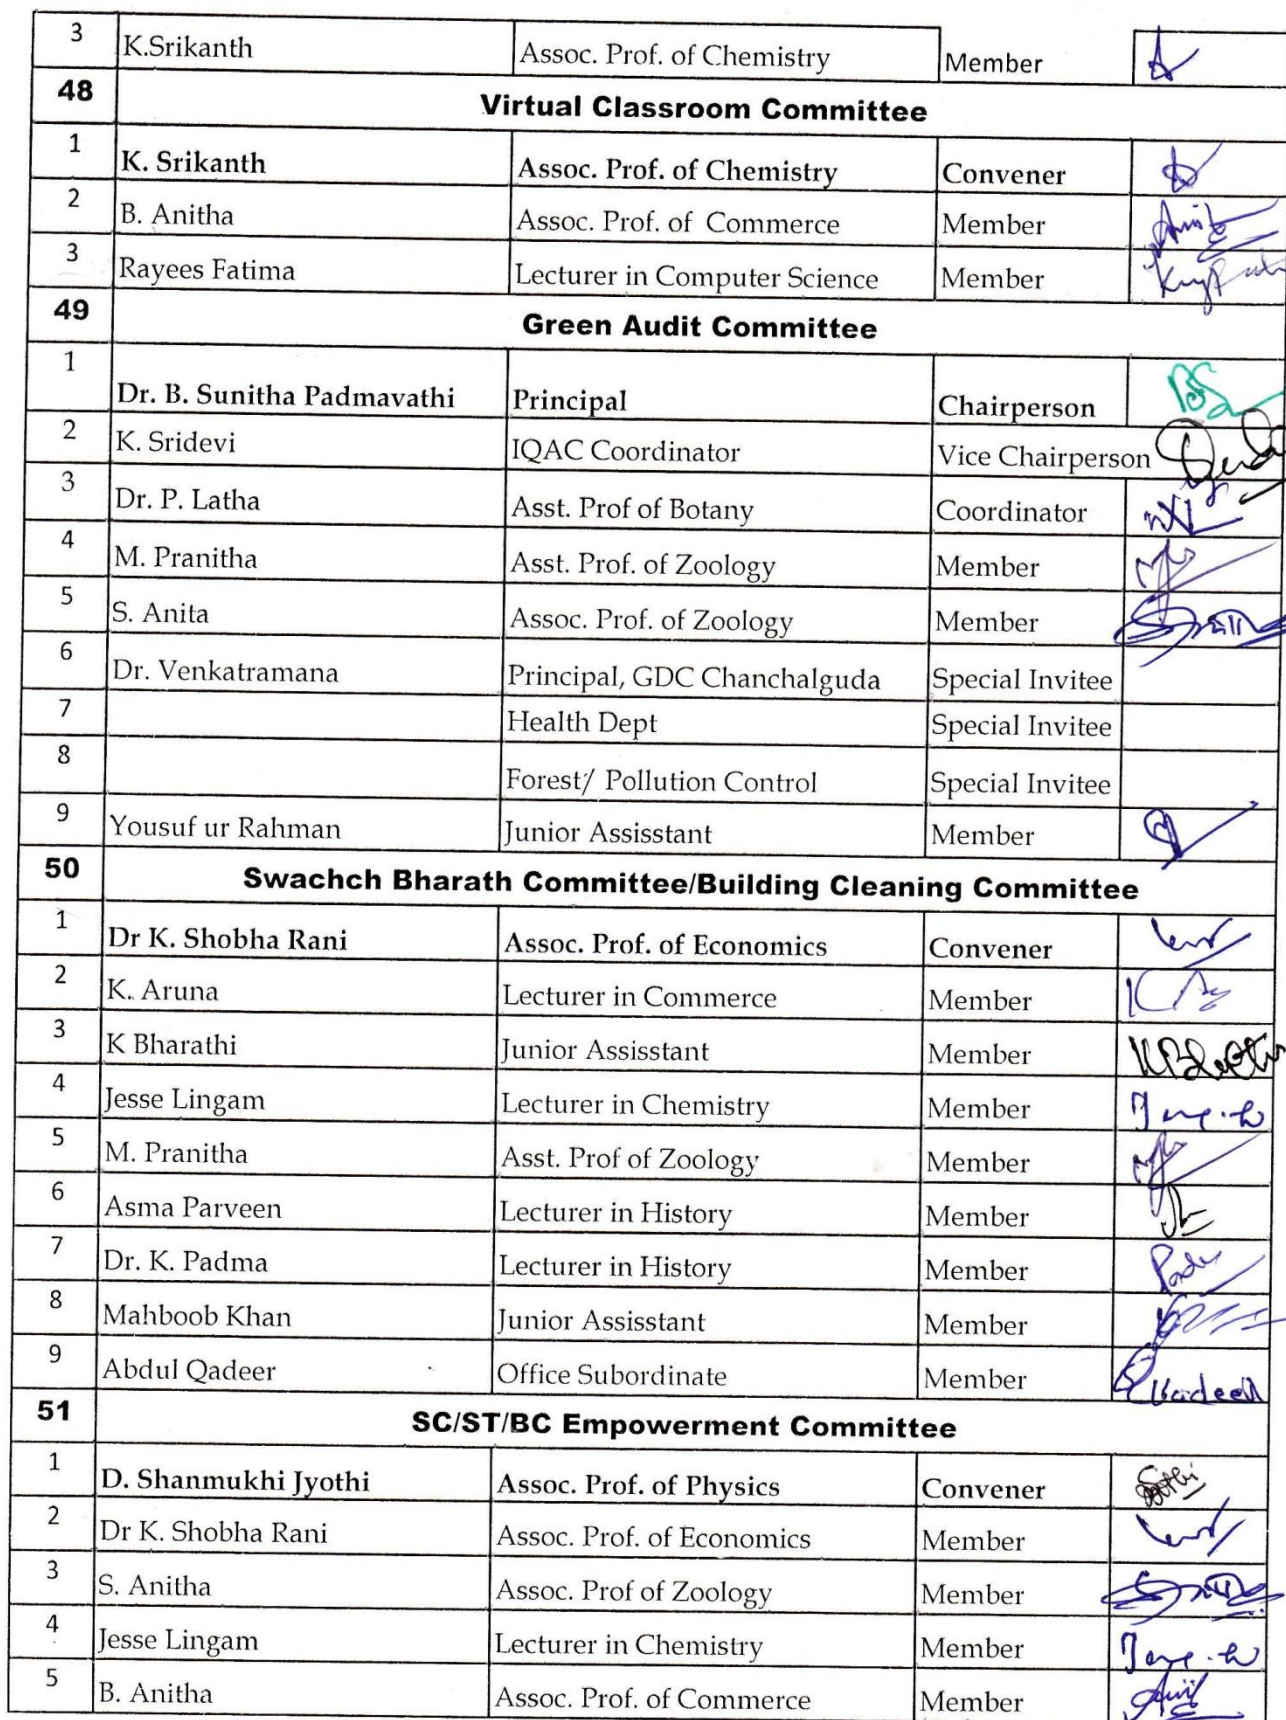 3 K.Srikanth Assoc. Prof. of Chemistry Member
48 Virtual Classroom Committee
1 K. Srikanth Assoc. Prof. of Chemistry Convener
2 B. Anitha Assoc. Prof. of Commerce Member
3 Rayees Fatima Lecturer in Computer Science Member
49 Green Audit Committee
1 Dr. B. Sunitha Padmavathi Principal Chairperson
2 K. Sridevi IQAC Coordinator Vice Chairperson
3 Dr. P. Latha Asst. Prof of Botany Coordinator
4 M. Pranitha Asst. Prof. of Zoology Member
5 S. Anita Assoc. Prof. of Zoology Member
6 Dr. Venkatramana Principal, GDC Chanchalguda Special Invitee
7 Health Dept Special Invitee
8 Forest/ Pollution Control Special Invitee
9 Yousuf ur Rahman Junior Assisstant Member
50 Swachch Bharath Committee/Building Cleaning Committee
1 Dr K. Shobha Rani Assoc. Prof. of Economics Convener
2 K. Aruna Lecturer in Commerce Member
3 K Bharathi Junior Assisstant Member
4 Jesse Lingam Lecturer in Chemistry Member
5 M. Pranitha Asst. Prof of Zoology Member
6 Asma Parveen Lecturer in History Member
7 Dr. K. Padma Lecturer in History Member
8 Mahboob Khan Junior Assisstant Member
9 Abdul Qadeer Office Subordinate Member
51 SC/ST/BC Empowerment Committee
1 D. Shanmukhi Jyothi Assoc. Prof. of Physics Convener
2 Dr K. Shobha Rani Assoc. Prof. of Economics Member
3 S. Anitha Assoc. Prof of Zoology Member
4 Jesse Lingam Lecturer in Chemistry Member
5 B. Anitha Assoc. Prof. of Commerce Member